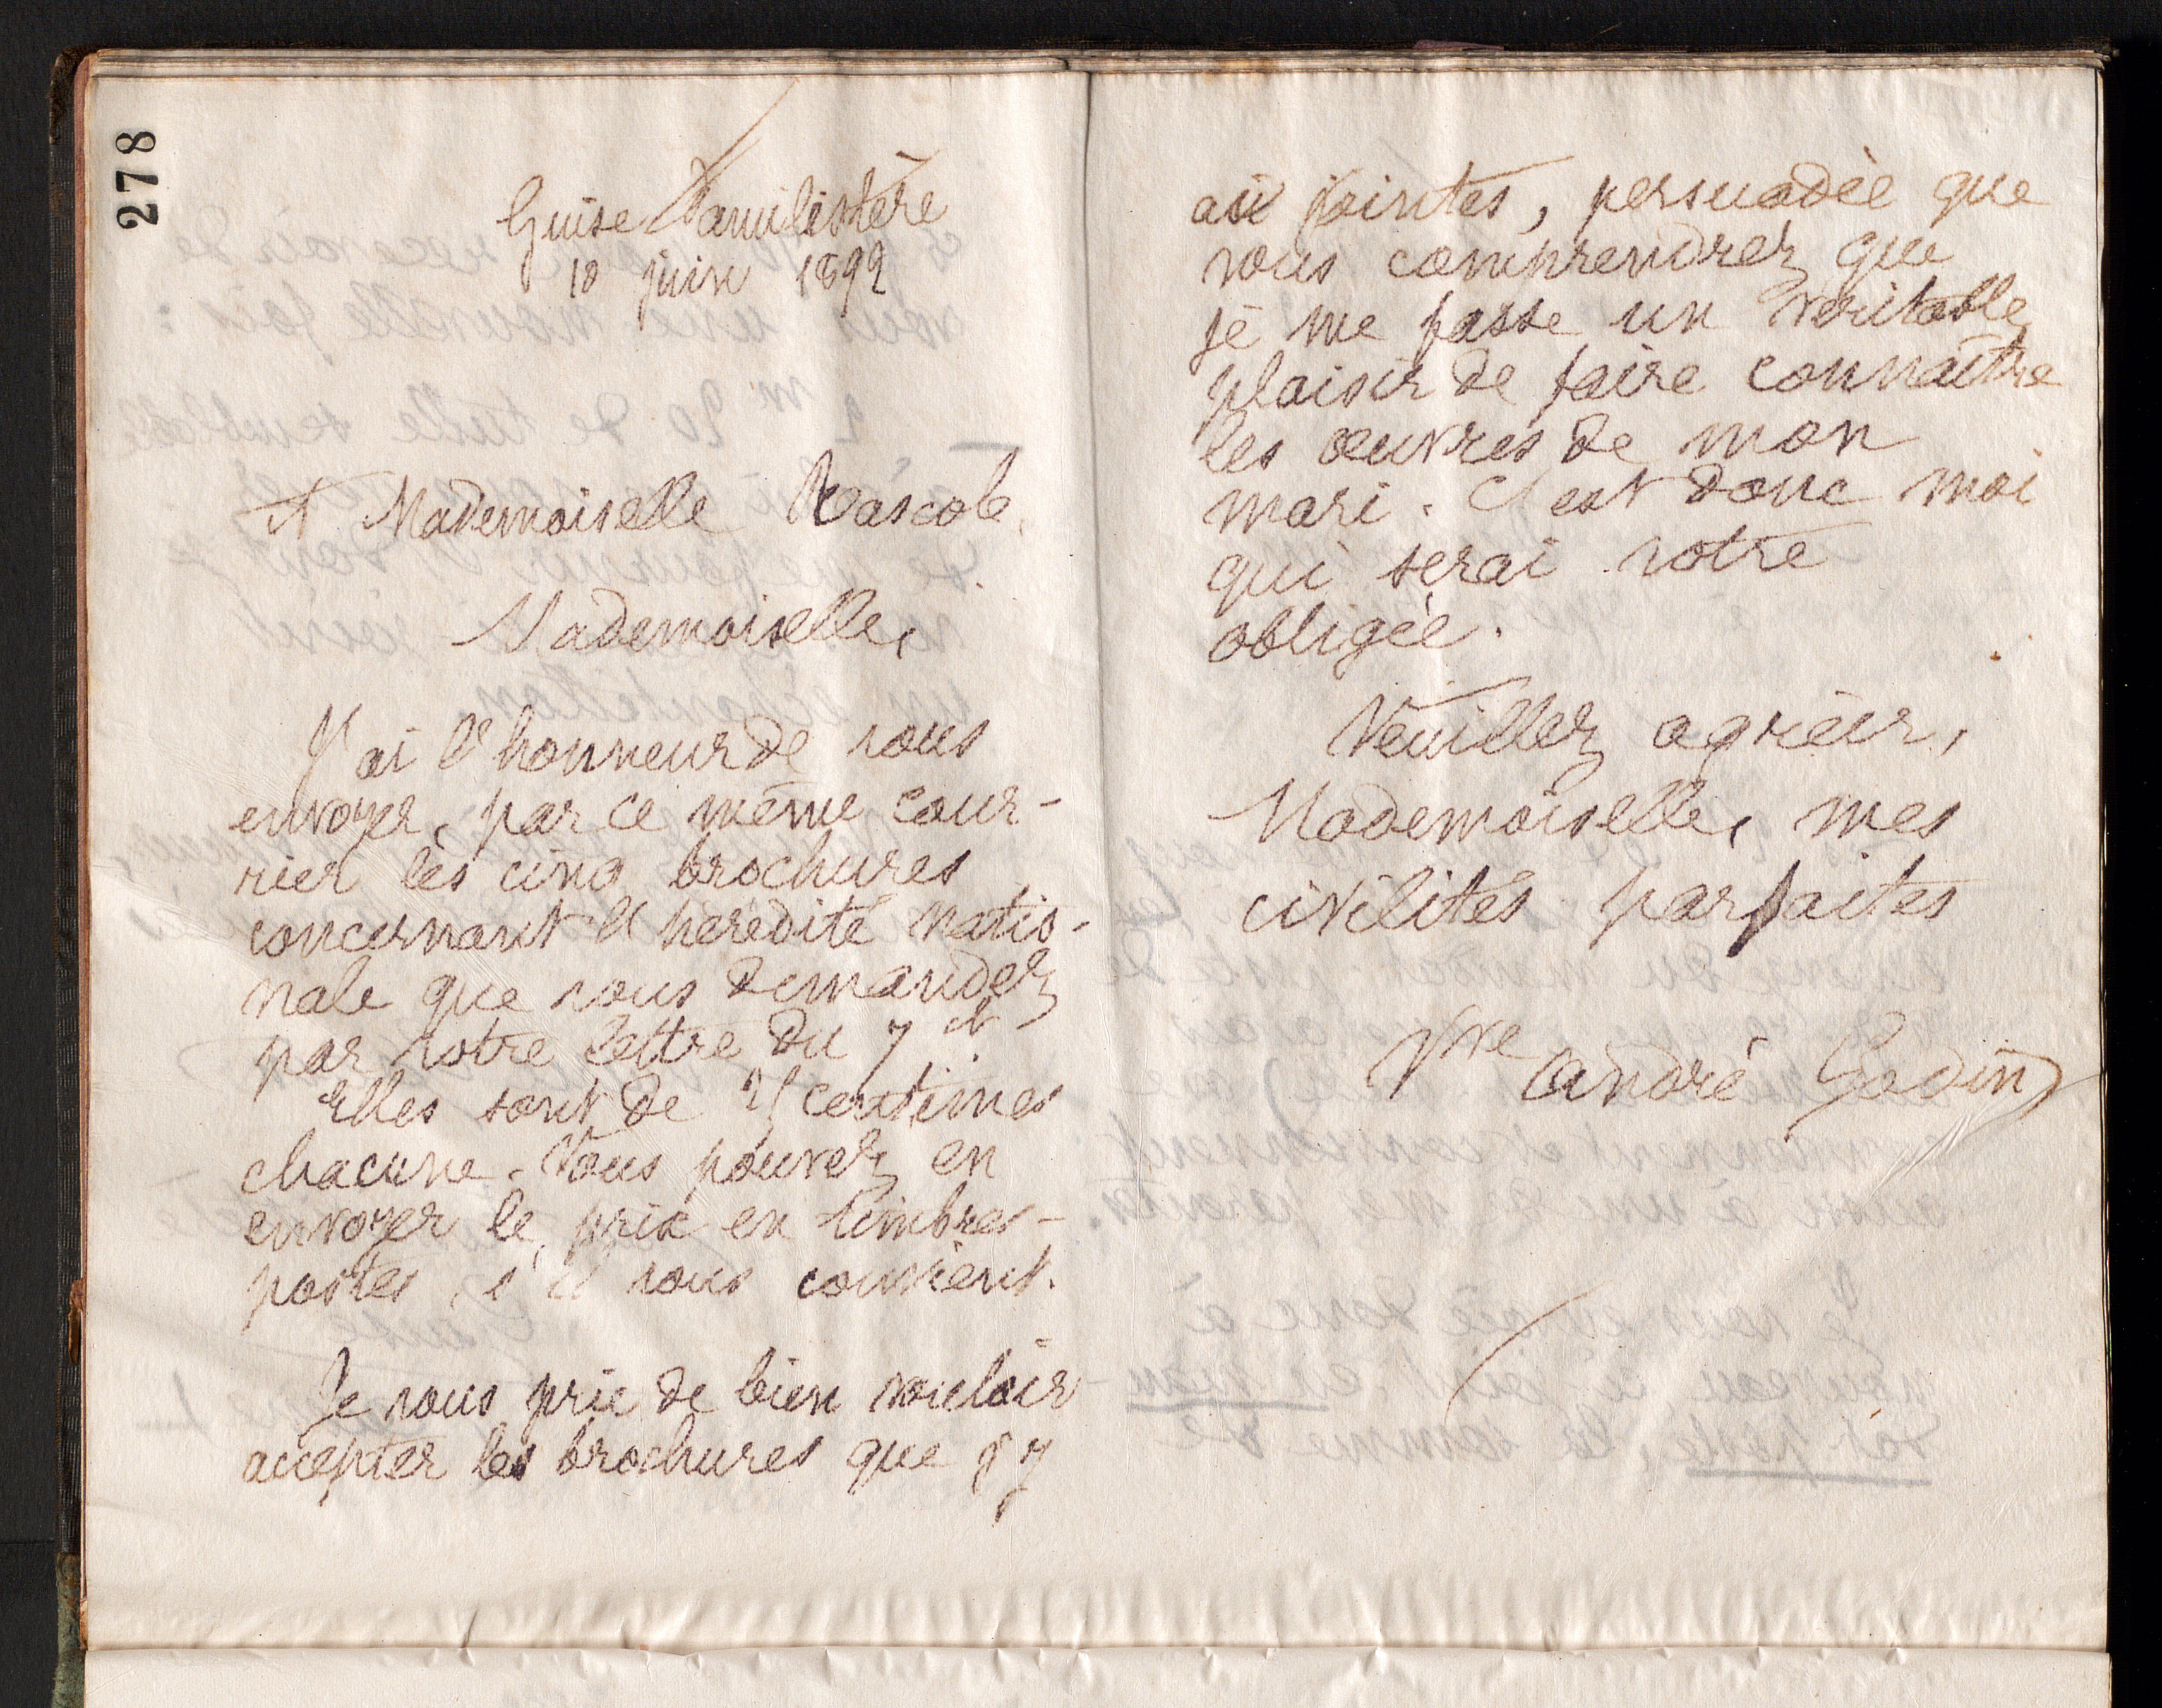 278
Guise Familistère
10 juin 1892
A Mademoiselle
Mademoiselle,
J'ai l'honneur de vous
envoyer, par ce même cour-
rier les cinq brochures
concernant l'hérédité natio-
nale que vous demandez
par votre lettre du 7 ct.
Elles sont de 25 centimes
chacune. Vous pouvez en
envoyer le prix en timbres-
postes, s'il vous convient.
Je vous prie de bien vouloir
accepter les brochures que j'y
ai jointes, persuadée que
vous comprendrez que
je me fasse un véritable
plaisir de faire connaître
les œuvres de mon
mari. C'est donc moi
qui serai votre
obligée.
Veuillez agréer,
Mademoiselle, mes
civilités parfaites
Vve André Godin